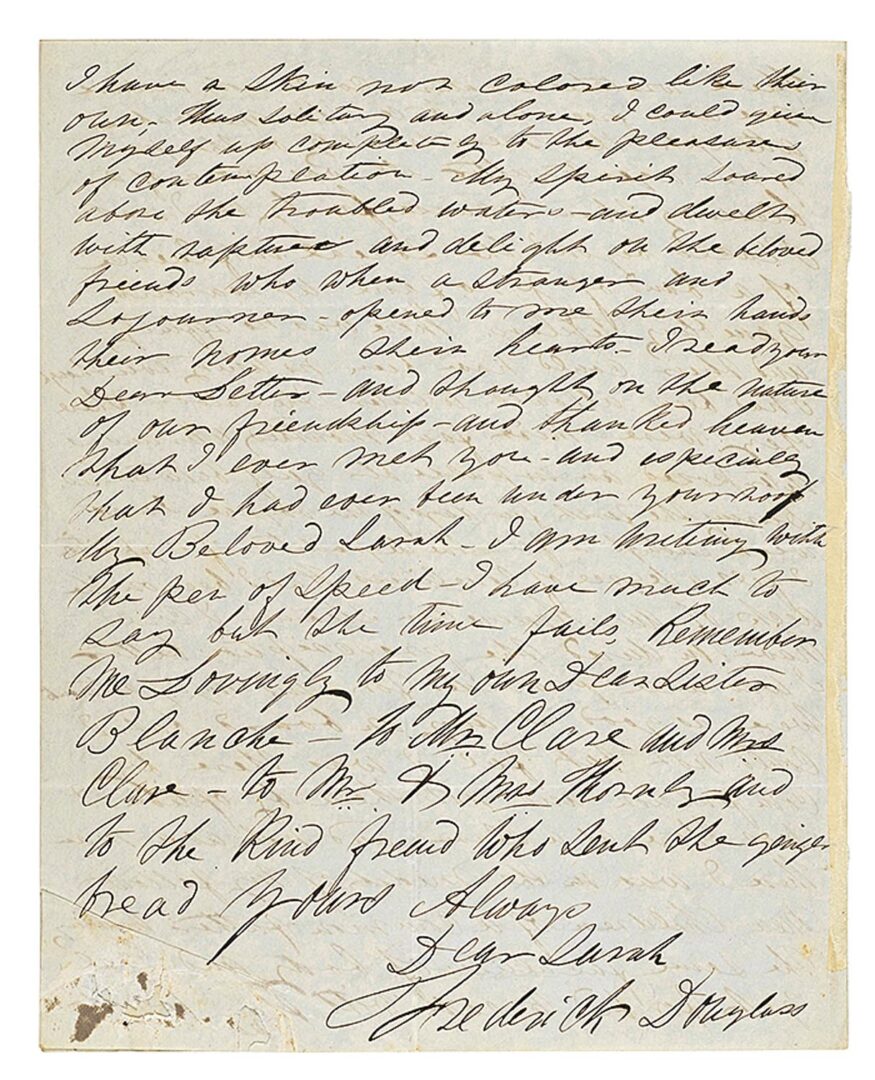 I have a skin not colored like their
own, thus solitary and alone, I could give
myself up completely to the pleasures
of contemplation - My spirit soared
above the troubled waters - and dwelt
with rapture and delight on the beloved
friends who when a stranger and
Sojourner - opened to me their hands
their homes their hearts - I read your
Dear Letter - and thought on the nature
of our friendship - and thanked heaven
that I ever met you - and especially
that I had ever been under your roof
My Beloved Sarah - I am writing with
the pen of speed - I have much to
say but the time fails, Remember
me Lovingly to my own Dear Sister
Blanche - to Mr Clare and Mrs
Clare - to Mr & Mrs and
to the Kind friend who sent the ginger
bread Yours Always
Dear Sarah
Frederick Douglass